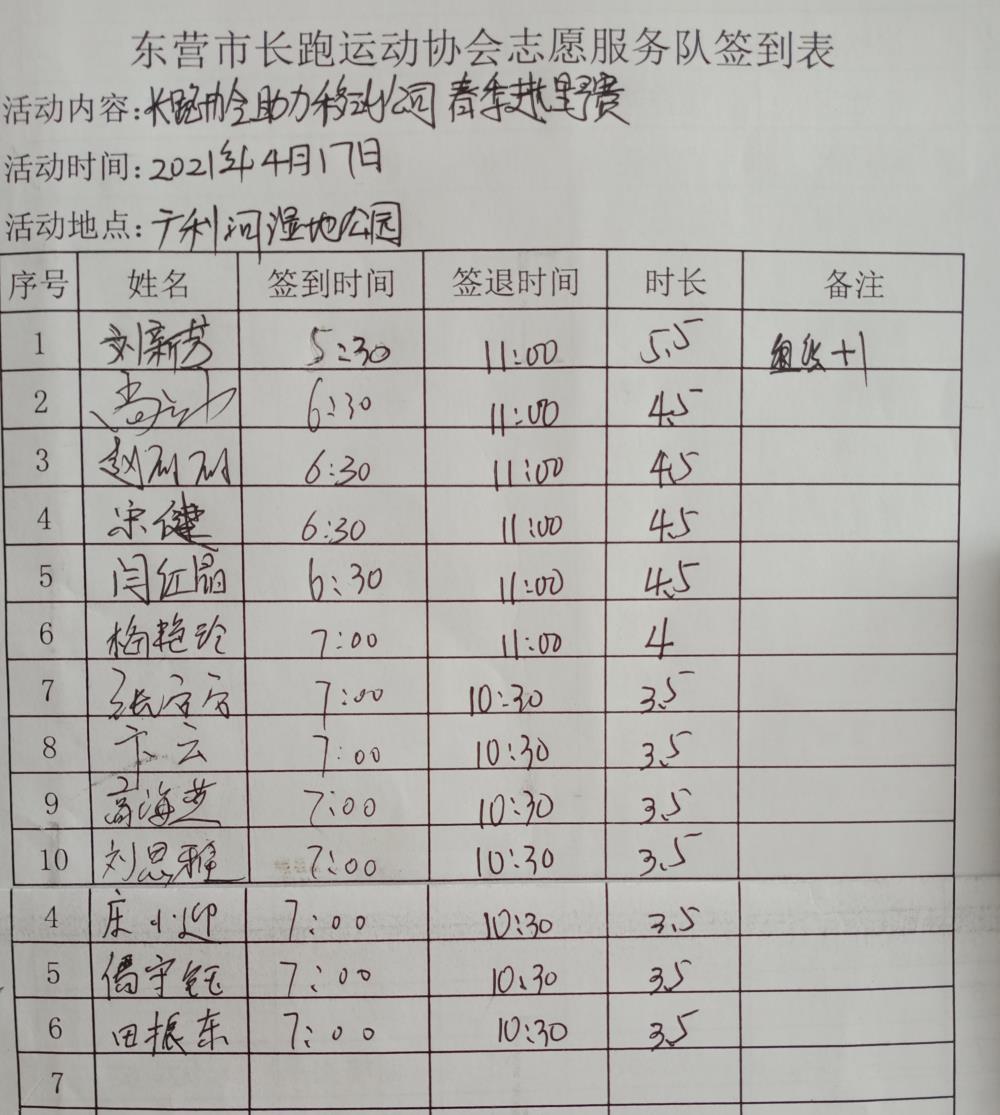 东营市长跑运动协会志愿服务队签到表
活动内容:长跑协会助力移动公园春季越野赛
活动时间:2021年4月17日
活动地点:广利河湿地公园
序号 姓名 签到时间 签退时间 时长 备注
1 刘新芳 5:30 11:00 5.5 +1
2 6:30 11:00 4.5
3 赵丽丽 6:30 11:00 4.5
4 宋健 6:30 11:00 4.5
5 闫红晶 6:30 11:00 4.5
6 杨艳玲 7:00 11:00 4
7 7:00 10:30 3.5
8 卞云 7:00 10:30 3.5
9 高海芝 7:00 10:30 3.5
10 刘思雅 7:00 10:30 3.5
4 庄小迎 7:00 10:30 3.5
5 7:00 10:30 3.5
6 田振东 7:00 10:30 3.5
7